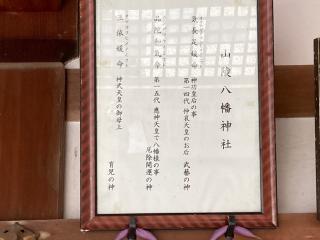 山陵八幡神社
息長足媛命 神功皇后の事
第一四代 仲哀天皇のお后 武藝の神
品陀和気命 第一五代 應神天皇で八幡様の事
厄除開運の神
玉依媛命 神武天皇の御母上
育児の神